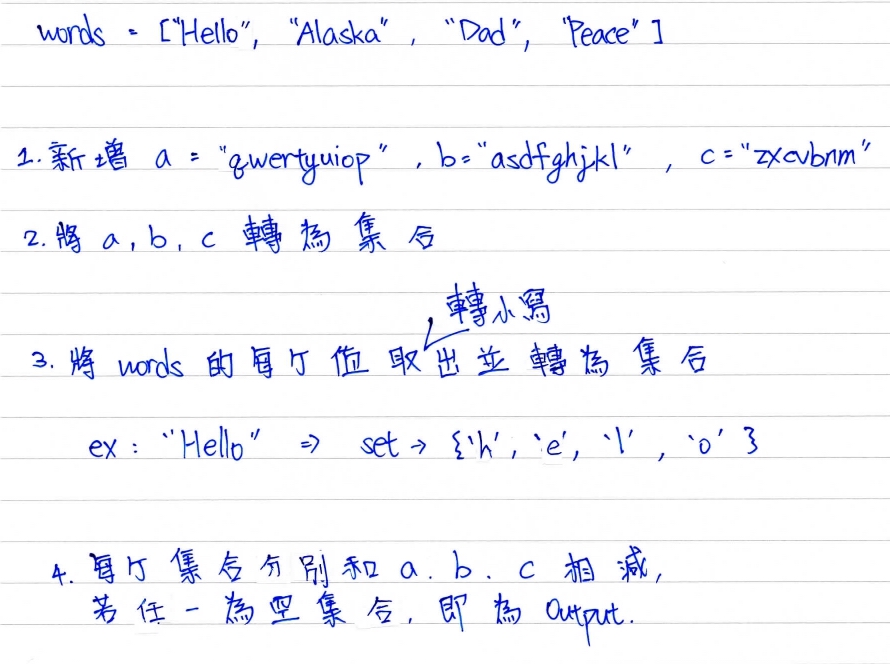 words = ["Hello", "Alaska", "Dad", "Peace"]
1. 新增 a = "qwertyuiop", b="asdfghjkl", c="zxcvbnm"
2. 將 a, b, c 轉為集合
轉小寫
3. 將 words 的每个值取出並轉為集合
ex: "Hello" => set → {'h', 'e', 'l', 'o'}
4. 每个集合分別和 a. b. c 相減,
若任一為空集合, 即為 Output.